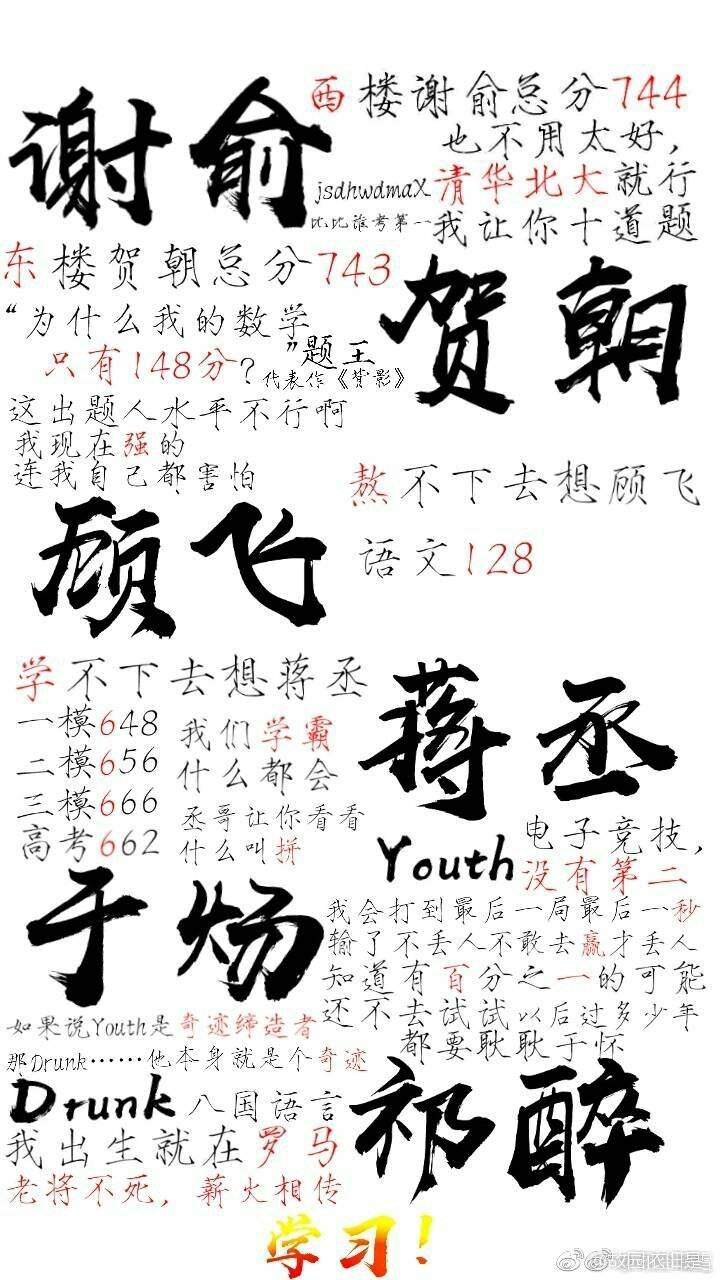 谢俞
西楼谢俞总分744
也不用太好，
清华北大就行
jsdhwdmaX
比比谁考第一
我让你十道题
东楼贺朝总分743
贺朝
“为什么我的数学
只有148分？”
题王
代表作《背影》
这出题人水平不行啊
我现在强的
连我自己都害怕
熬不下去想顾飞
语文128
顾飞
学不下去想蒋丞
蒋丞
一模648
二模656
三模666
高考662
我们学霸
什么都会
丞哥让你看看
什么叫拼
Youth
电子竞技，
没有第二
于炀
我会打到最后一局最后一秒
输了不丢人不敢去赢才丢人
知道有百分之一的可能
还不去试试以后过多少年
都要耿耿于怀
如果说Youth是奇迹缔造者
那Drunk……他本身就是个奇迹
Drunk 八国语言
祁醉
我出生就在罗马
老将不死，薪火相传
学习！